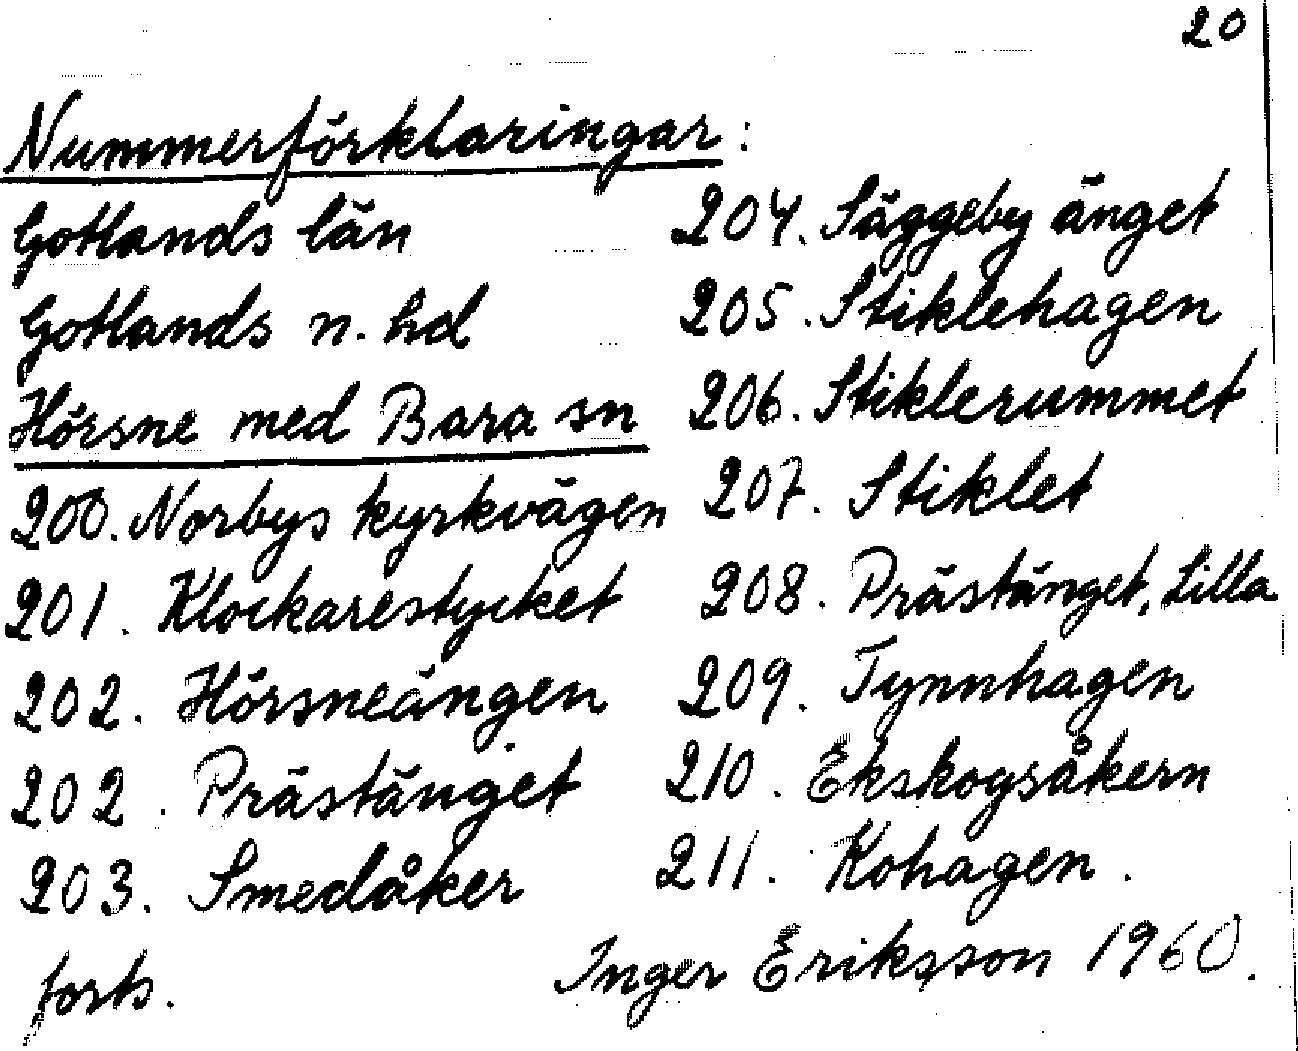 20
Nummerförklaringar:
Gotlands län
Gotlands n. hd
Hörsne med Bara sn
200. Norbys kyrkvägen
201. Klockarestycket
202. Hörsneängen
202. Prästänget
203. Smedåker
forts.
204. Säggeby änget
205. Stiklehagen
206. Stiklerummet
207. Stiklet
208. Prästänget, Lilla
209. Tynnhagen
210. Ekskogsåkern
211. Kohagen.
Inger Eriksson 1960.